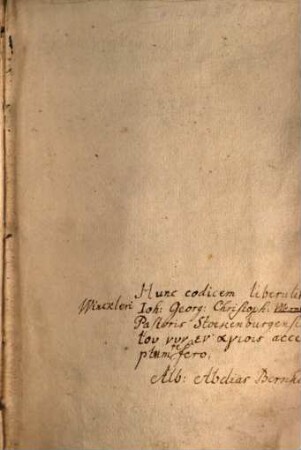 Hunc codicem liberali
Winckleri Joh: Georg: Christoph:
Pastoris Stoekenburgensi
του νυν εν αγιοις acce
ptum fero.
Alb: Abdias Bernh